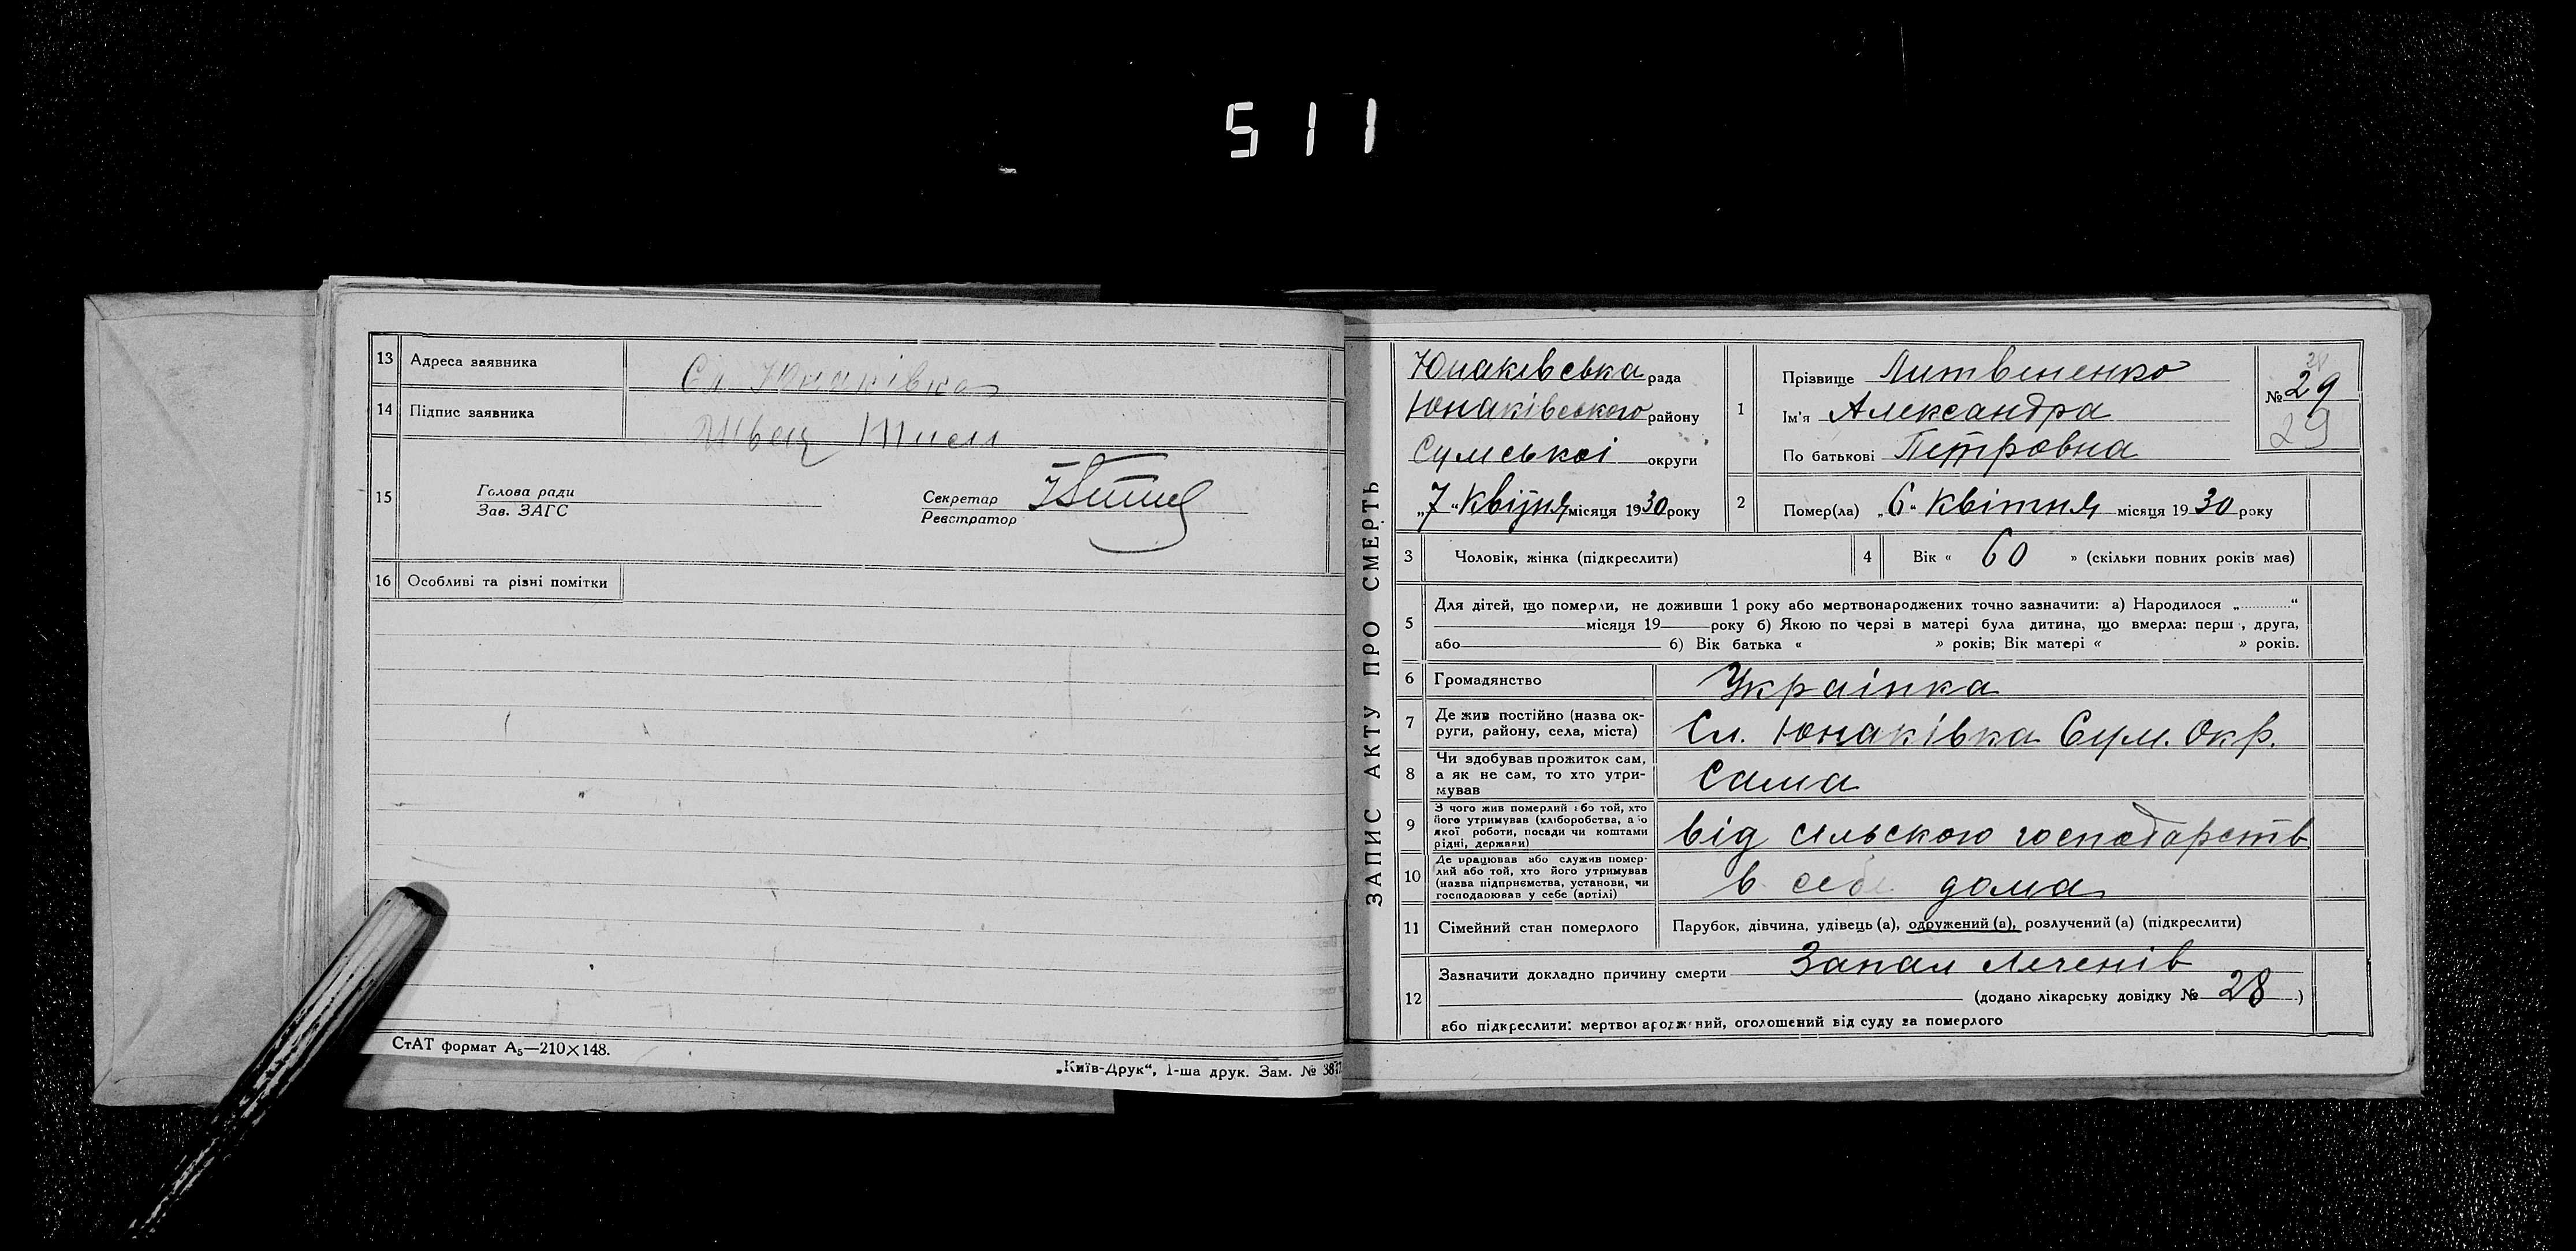 511
13 Адреса заявника Сл. Юнаківка
14 Підпис заявника Швец
15 Голова ради
Зав. ЗАГС
Секретар
Реєстратор
16 Особливі та різні помітки
СтАТ формат А₅—210×148.
„Київ-Друк“, 1-ша друк. Зам. № 387
ЗАПИС АКТУ ПРО СМЕРТЬ
Юнаківська рада
Юнаківського району
Сумської округи
„7“ Квітня місяця 1930 року
1 Прізвище Литвененко
Ім'я Александра
По батькові Петровна
28
№ 29
29
2 Помер(ла) „6“ Квітня місяця 1930 року
3 Чоловік, жінка (підкреслити)
4 Вік « 60 » (скільки повних років має)
5 Для дітей, що померли, не доживши 1 року або мертвонароджених точно зазначити: а) Народилося „ “
місяця 19 року б) Якою по черзі в матері була дитина, що вмерла: перш , друга,
або б) Вік батька « » років; Вік матері « » років.
6 Громадянство Украінка
7 Де жив постійно (назва ок-
руги, району, села, міста) Сл. Юнаківка Сум. Окр.
8 Чи здобував прожиток сам,
а як не сам, то хто утри-
мував Сама
9 З чого жив померлий або той, хто
його утримував (хліборобства, або
якої роботи, посади чи коштами
рідні, держави) від сільского господарств
10 Де працював або служив помер-
лий або той, хто його утримував
(назва підприємства, установи, чи
господарював у себе (артілі) в себе дома
11 Сімейний стан померлого Парубок, дівчина, удівець (а), одружений (а), розлучений (а) (підкреслити)
12 Зазначити докладно причину смерти Запал легенів
(додано лікарську довідку № 28 )
або підкреслити: мертвонароджений, оголошений від суду за померлого